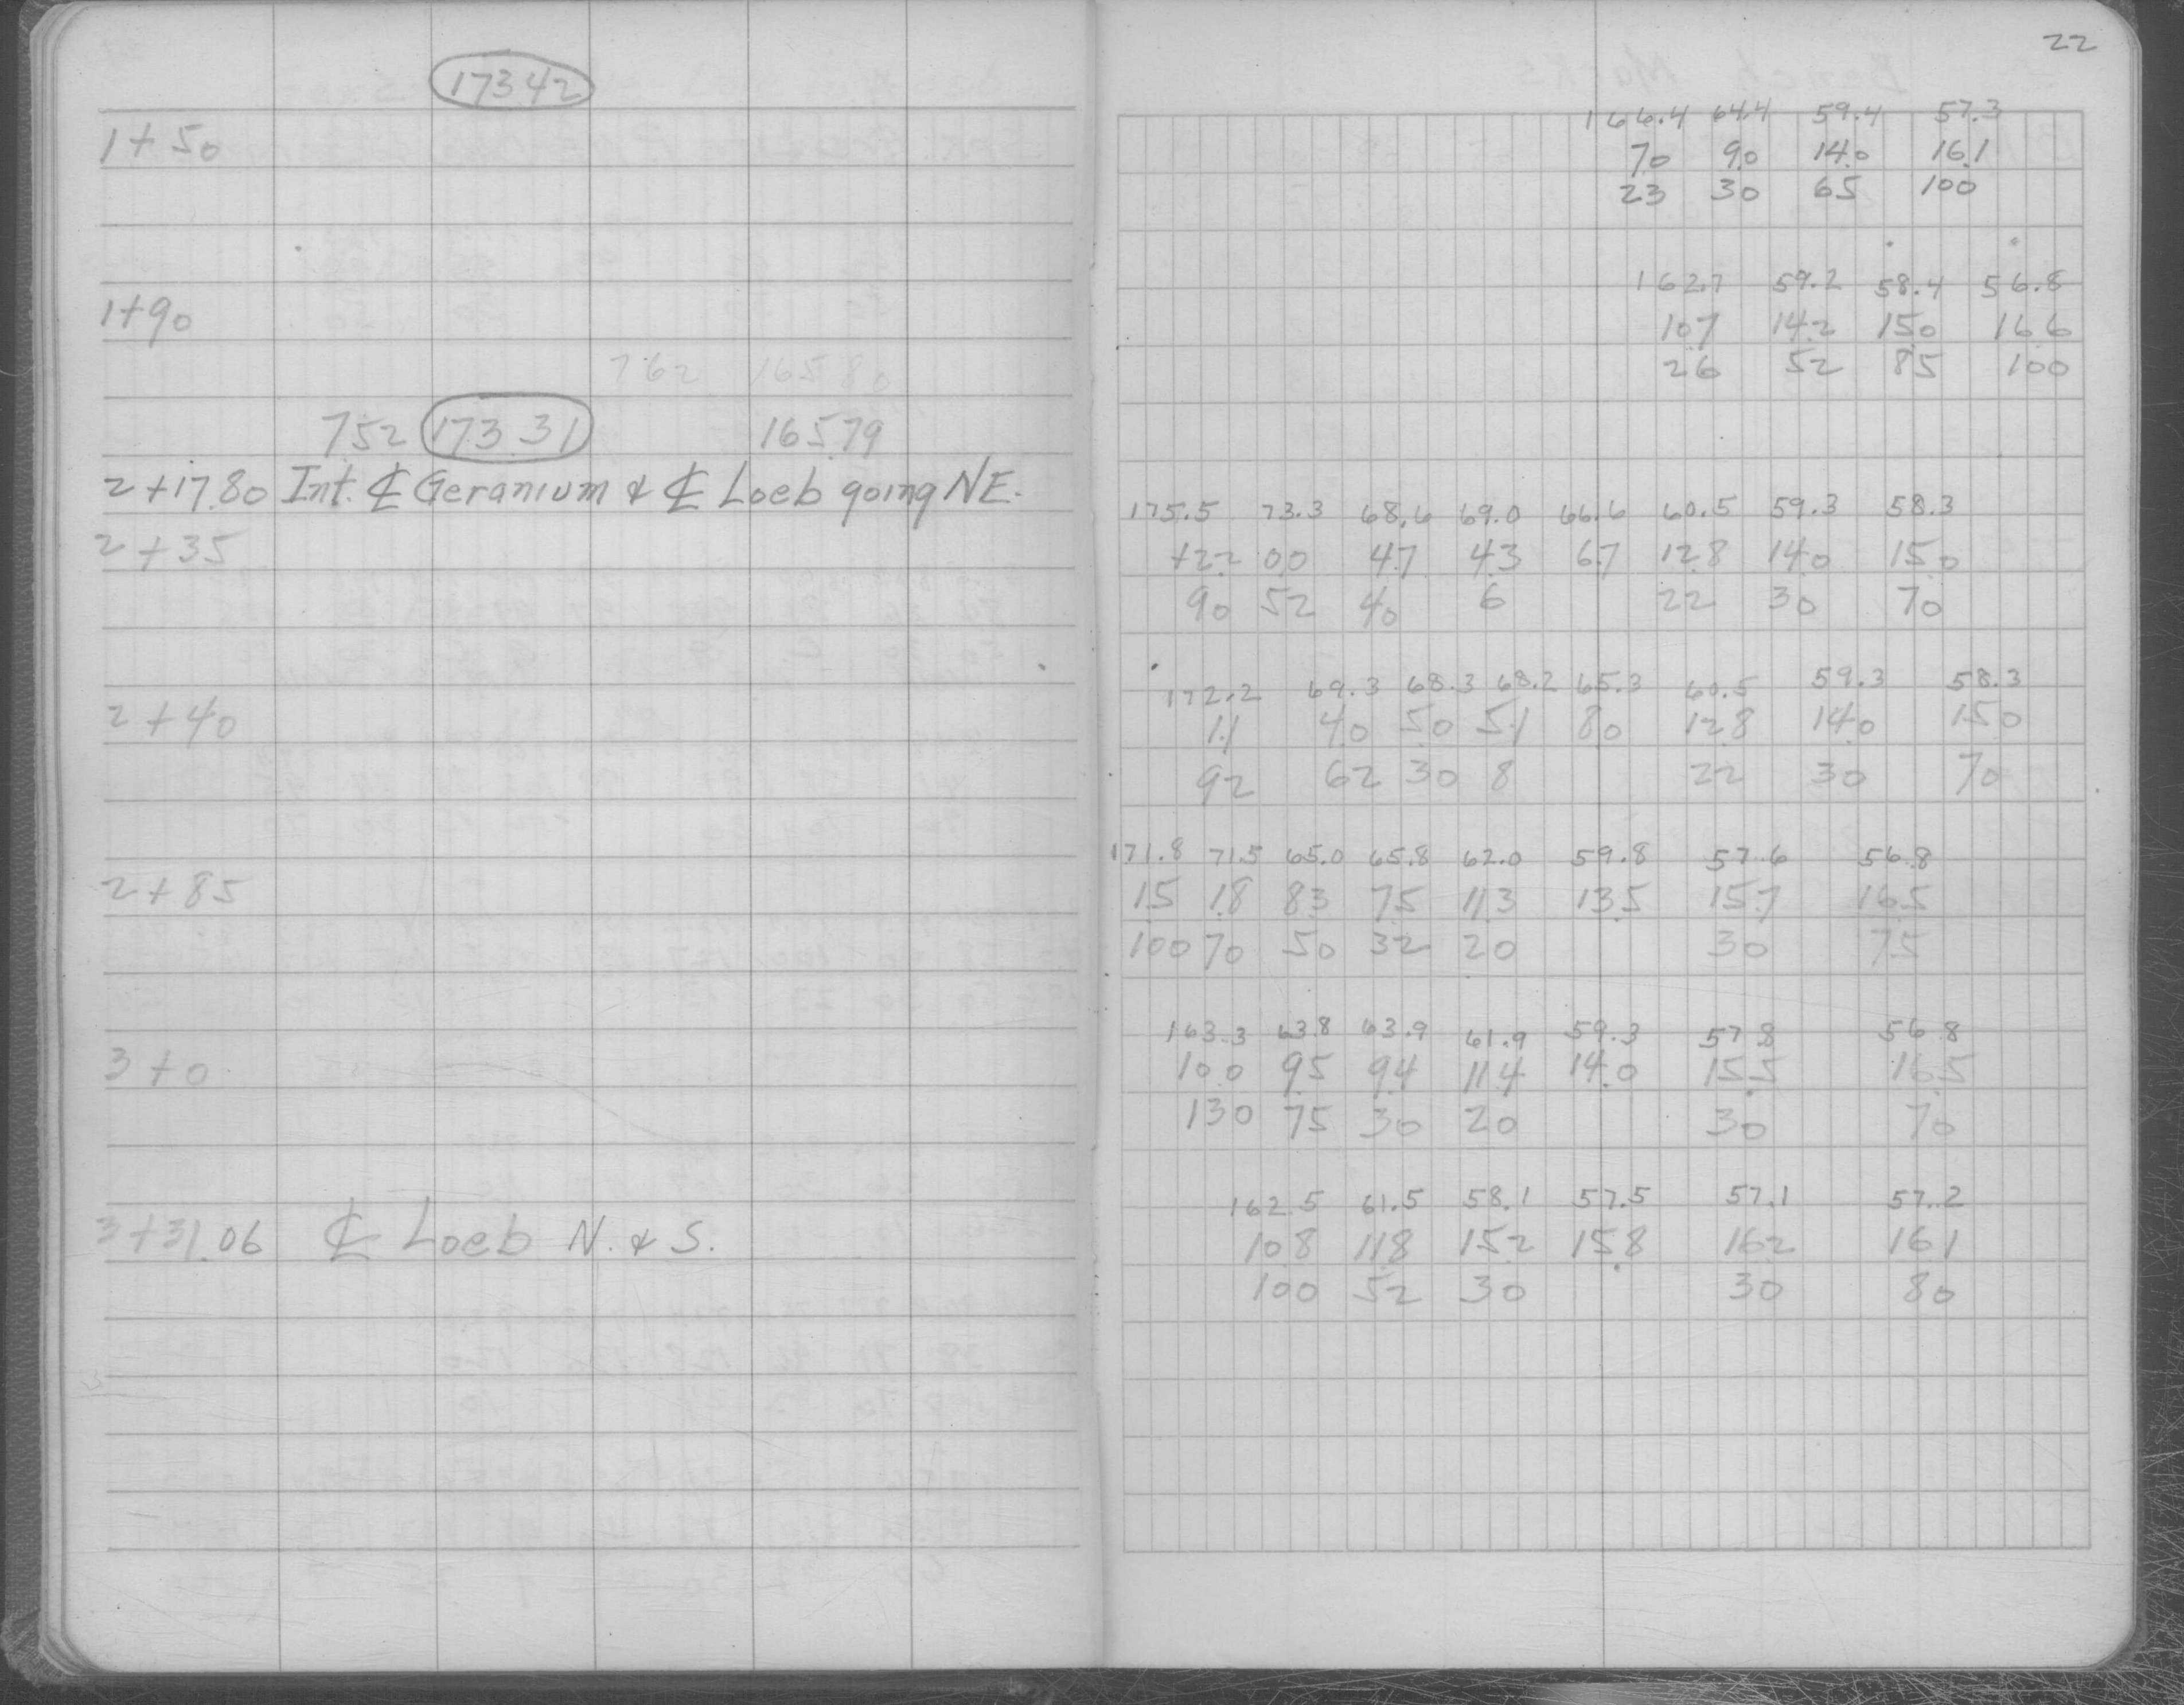 22
173.42
1+50
166.4 64.4 59.4 57.3
7.0 9.0 14.0 16.1
23 30 65 100
1+90
162.7 59.2 58.4 56.8
10.7 14.2 15.0 16.6
26 52 85 100
7.62 165.80
7.52 173.31 165.79
2+17.80 Int. ℄ Geranium & ℄ Loeb going NE.
2+35
175.5 73.3 68.6 69.0 66.6 60.5 59.3 58.3
+2.2 0.0 4.7 4.3 6.7 12.8 14.0 15.0
90 52 40 6 22 30 70
2+40
172.2 69.3 68.3 68.2 65.3 60.5 59.3 58.3
1.1 4.0 5.0 5.1 8.0 12.8 14.0 15.0
92 62 30 8 22 30 70
2+85
171.8 71.5 65.0 65.8 62.0 59.8 57.6 56.8
1.5 1.8 8.3 7.5 11.3 13.5 15.7 16.5
100 70 50 32 20 30 75
3+0
163.3 63.8 63.9 61.9 59.3 57.8 56.8
10.0 9.5 9.4 11.4 14.0 15.5 16.5
130 75 30 20 30 70
3+31.06 ℄ Loeb N. & S.
162.5 61.5 58.1 57.5 57.1 57.2
10.8 11.8 15.2 15.8 16.2 16.1
100 52 30 30 80